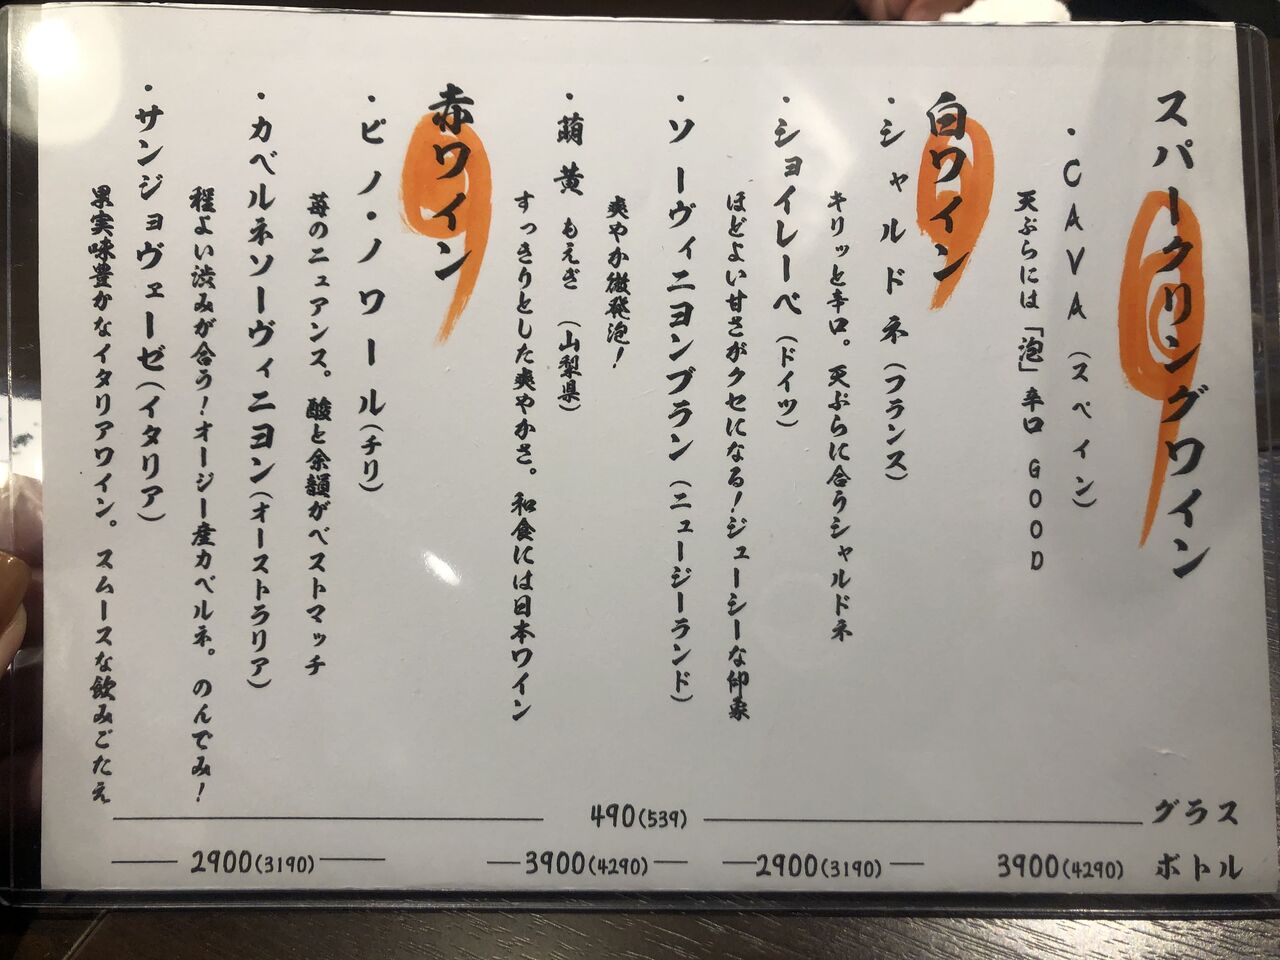 スパークリングワイン
・CAVA（スペイン）
天ぷらには「泡」辛口 GOOD
白ワイン
・シャルドネ（フランス）
キリッと辛口。天ぷらに合うシャルドネ
・ショイレーベ（ドイツ）
ほどよい甘さがクセになる！ジューシーな印象
・ソーヴィニヨンブラン（ニュージーランド）
爽やか微発泡！
・萌黄 もえぎ（山梨県）
すっきりとした爽やかさ。和食には日本ワイン
赤ワイン
・ピノ・ノワール（チリ）
苺のニュアンス。酸と余韻がベストマッチ
・カベルネソーヴィニヨン（オーストラリア）
程よい渋みが合う！オージー産カベルネ。のんでみ！
・サンジョヴェーゼ（イタリア）
果実味豊かなイタリアワイン。スムースな飲みごたえ
グラス 490(539)
ボトル 3900(4290) 2900(3190) 3900(4290) 2900(3190)